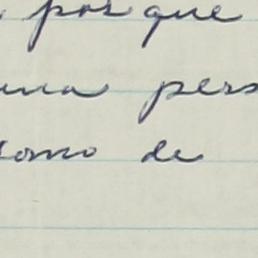 por que
una pers
como de